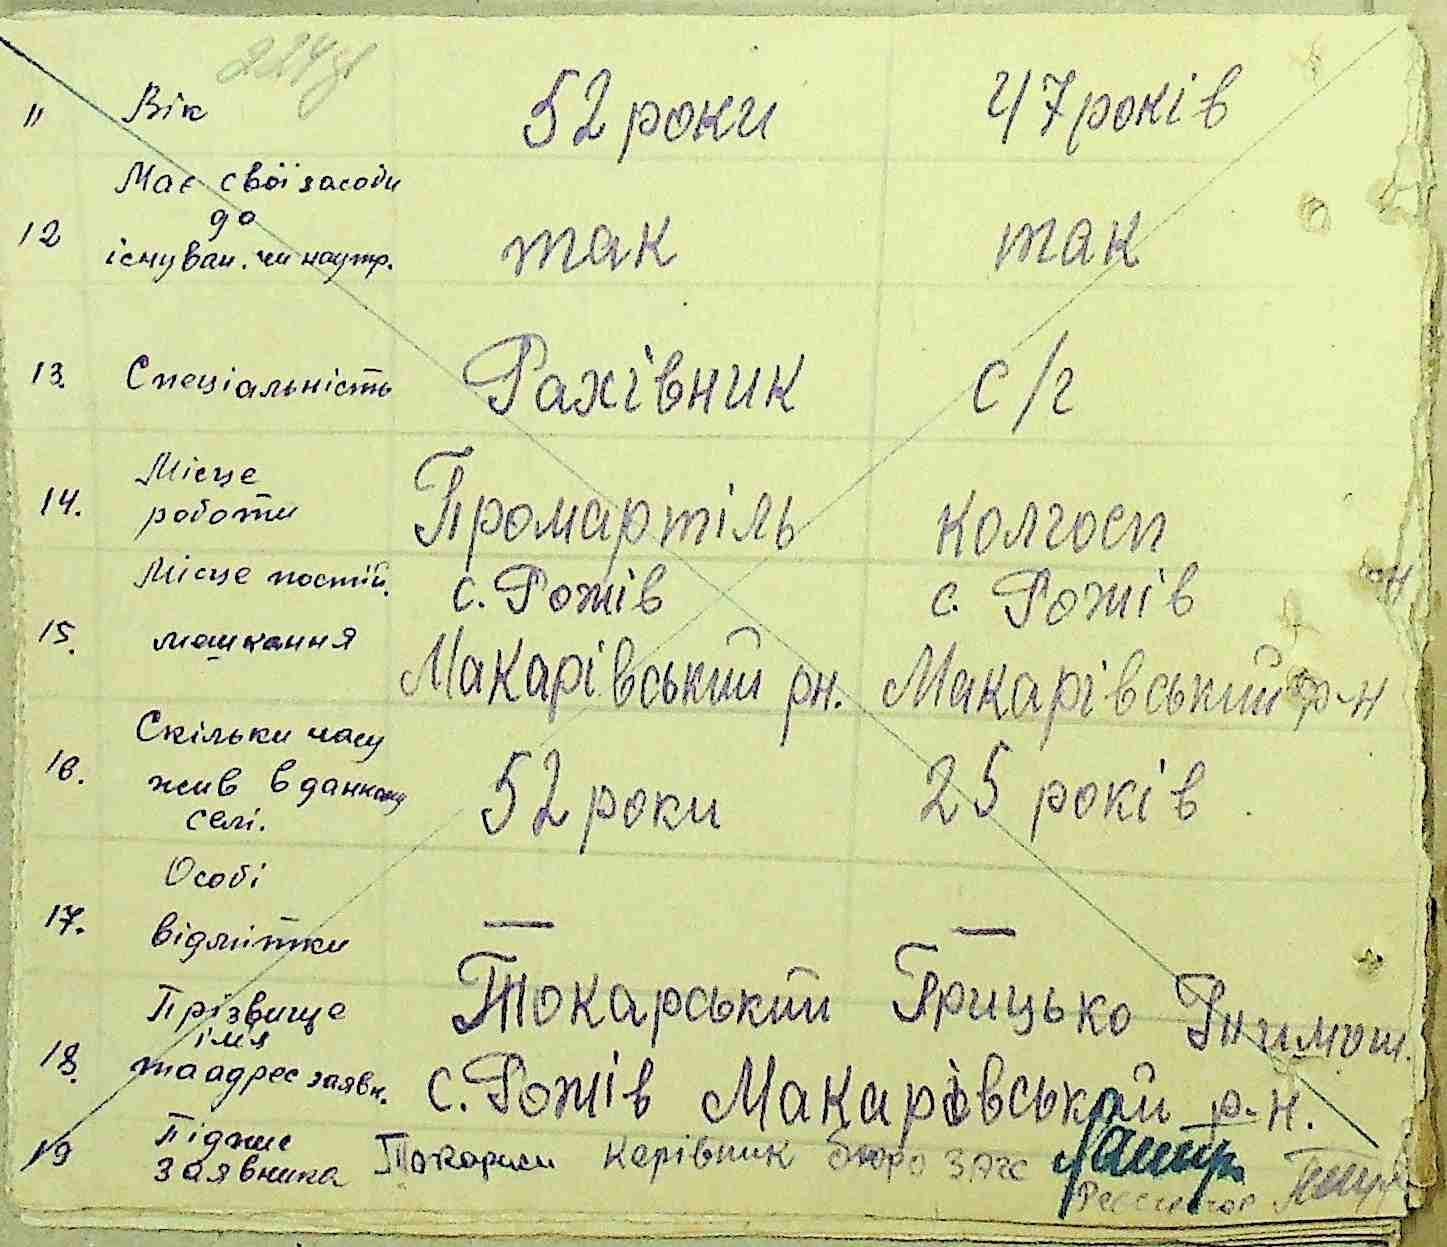 11 Вік 52 роки 47 років
Має свої засоби
12 до так так
існуван. чи наутр.
13. Спеціальність Рахівник с/г
Місце
14. роботи Промартіль колгосп
Місце постій. с. Рожів с. Рожів
15. мешкання Макарівський рн. Макарівський р-н
Скільки часу
16. жив в данному 52 роки 25 років
селі.
Особі
17. відмітки — —
Прізвище Токарський Грицько
імя
18. та адрес заявн. с. Рожів Макарівський р-н.
19 Підпис
заявника керівник бюро загс